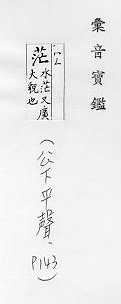 彙音寶鑑
茫 水茫又廣
大貌也
(公下平聲、P143)